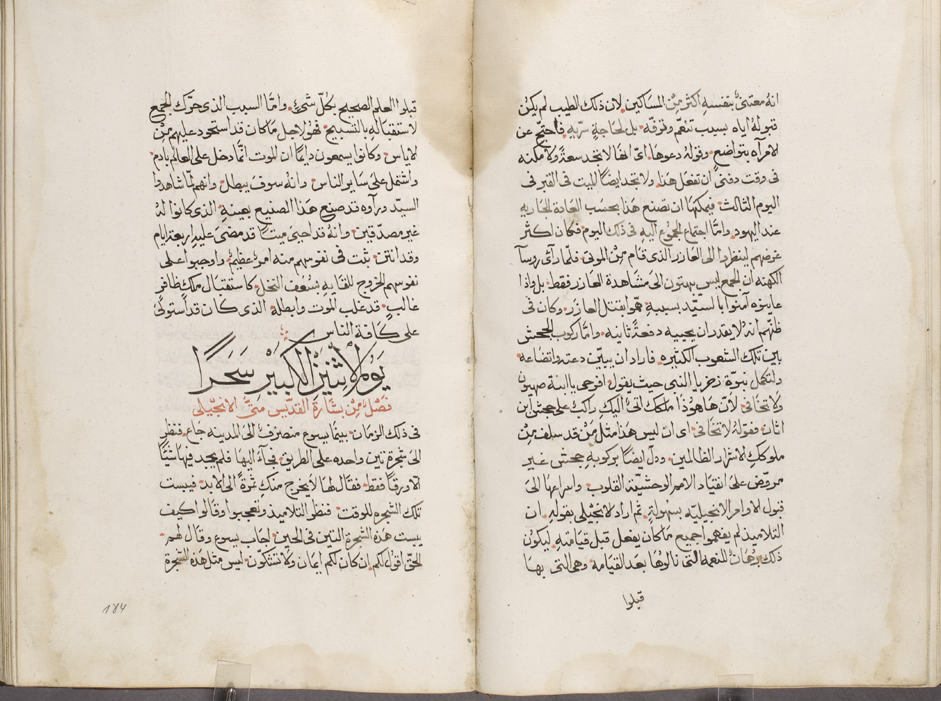 انه معتنيٌ بنفسهِ اكثر مِنْ المساكين لان ذلك الطيب لم يكن
قبولهُ اياه بسبب تنعّم وترفّه بل لحاجةٍ سرّيه فأحتجّ عن
الامراه بتواضع وقوله دعوها اي انها لا تجد سعةً ولا مكنه
في وقت دفني ان تفعل هذا ولا تجد ايضًا الميت في القبر في
اليوم الثالث فيمكنها ان تصنع هذا بحسب العادة الجاريه
عند اليهود وامّا اجتماع الجموع اليه في ذلك اليوم فكان اكثر
غرضهم لينظروا الى العازر الذي قام من الموتى فلمّا رأى روسآ
الكهنه ان الجمع ليس يهتون الى مشاهدة العازر فقط بل واذا
عاينوه آمنوا بالسيّد بسببهِ همّوا بقتل العازر وكان في
ظنّهم انه لا يقدر ان يحييه دفعةً ثانيه وامّا ركوب الجحش
بين تلك الشعوب الكثيره فاراد ان يبيّن دعته واتضاعه
ولتكمل نبوّة زخريا النبي حيث يقول افرحي يا ابنة صهيون
ولا تخافي لأن هاهوذا ملكك اتى اليك راكب على جحش ابن
اتان فقولهُ لا تخافي اي ان ليس هذا مثل مَنْ قد سلف مِنْ
ملوككِ الاشرار الظالمين ودلّ ايضًا بركوبهِ جحش غير
مروّض على انقياد الامم الوحشيّة القلوب واسراعها الى
قبول الاوامر الانجيليّه بسهولةٍ ثم اراد الانجيلي بقولهِ ان
التلاميذ لم يفهموا جميع ما كان يفعل قبل قيامته ليكون
ذلك برهانٌ للنعمه التي نالوها بعد القيامه وهي التي بها
قبلوا
قبلوا العلم الصحيح بكلّ شيءٍ وامّا السبب الذي حرّك الجمع
لاستقباله بالتسبيح فهو لاجل ما كان قد استحوذ عليهم مِنْ
الاياس وكانوا يسمعون دايمًا ان الموت انّما دخل على العالم بادم
واشتمل على ساير الناس وانه سوف يبطل وانهم لمّا شاهدوا
السيّد ورآوه قد صنع هذا الصنيع بعينهِ الذي كانوا لهُ
غير مصدّقين وانهُ قد احيى ميتًا قد مضى عليه اربعة ايام
وقد انتن ثبت في نفوسهم منه امرٌ عظيمٌ واوجبوا على
نفوسهم الخروج للقايه بسُعف النخل كاستقبال ملك ظافر
غالبٍ قد غلب الموت وابطله الذي كان قد استولى
على كافة الناس
يَوْمُ الاثنَيْنِ الكَبِيْرِ سَحَرًا
فصْلٌ مِنْ بشارة القدّيس متيّ الانجيلي
في ذلك الزمان بينما يسوع منصرفٌ الى المدينه جاع فنظر
الى شجرة تين واحده على الطريق فجآء اليها فلم يجد فيها شيًّا
الا ورقًا فقط فقال لها لا يخرج منك ثمرةٌ الى الابد فيبست
تلك الشجره للوقت فنظر التلاميذ وتعجبوا وقالوا كيف
يبست هذه الشجرة التين في الحين اجاب يسوع وقال لهم
الحق اقول لكم ان كان لكم ايمان ولا تشكّون ليس مثل هذه الشجرة
184